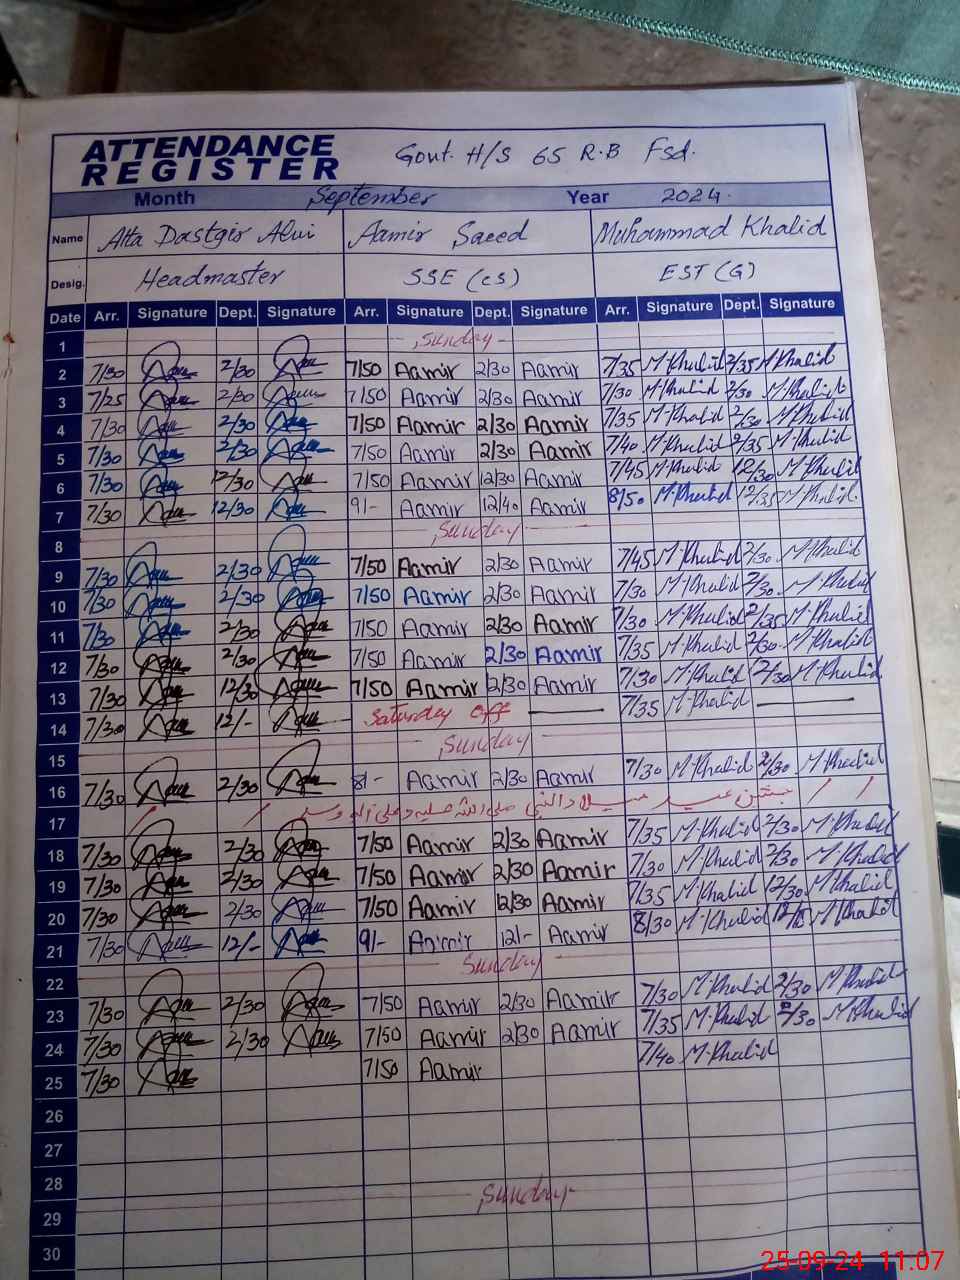 ATTENDANCE REGISTER Govt. H/S 65 R.B Fsd.
Month September Year 2024.
Name Atta Dastgir Alvi Aamir Saeed Muhammad Khalid
Desig. Headmaster SSE (CS) EST (G)
Date Arr. Signature Dept. Signature Arr. Signature Dept. Signature Arr. Signature Dept. Signature
1 Sunday
2 7/30 2/30 7/50 Aamir 2/30 Aamir 7/35 M.Khalid 2/35 M.Khalid
3 7/25 2/30 7/50 Aamir 2/30 Aamir 7/30 M.Khalid 2/30 M.Khalid
4 7/30 2/30 7/50 Aamir 2/30 Aamir 7/35 M.Khalid 2/30 M.Khalid
5 7/30 2/30 7/50 Aamir 2/30 Aamir 7/40 M.Khalid 2/35 M.Khalid
6 7/30 12/30 7/50 Aamir 12/30 Aamir 7/45 M.Khalid 12/30 M.Khalid
7 7/30 12/30 9/- Aamir 12/40 Aamir 8/50 M.Khalid 12/35 M.Khalid
8 Sunday
9 7/30 2/30 7/50 Aamir 2/30 Aamir 7/45 M.Khalid 2/30 M.Khalid
10 7/30 2/30 7/50 Aamir 2/30 Aamir 7/30 M.Khalid 2/30 M.Khalid
11 7/30 2/30 7/50 Aamir 2/30 Aamir 7/30 M.Khalid 2/35 M.Khalid
12 7/30 2/30 7/50 Aamir 2/30 Aamir 7/35 M.Khalid 2/30 M.Khalid
13 7/30 12/30 7/50 Aamir 12/30 Aamir 7/30 M.Khalid 12/30 M.Khalid
14 7/30 12/- Saturday off 7/35 M.Khalid
15 Sunday
16 7/30 2/30 8/- Aamir 2/30 Aamir 7/30 M.Khalid 2/30 M.Khalid
17 جشن عید میلاد النبی صلی اللہ علیہ وعلی آلہ وسلم
18 7/30 2/30 7/50 Aamir 2/30 Aamir 7/35 M.Khalid 2/30 M.Khalid
19 7/30 2/30 7/50 Aamir 2/30 Aamir 7/30 M.Khalid 2/30 M.Khalid
20 7/30 2/30 7/50 Aamir 12/30 Aamir 7/35 M.Khalid 12/30 M.Khalid
21 7/30 12/- 9/- Aamir 12/- Aamir 8/30 M.Khalid M.Khalid
22 Sunday
23 7/30 2/30 7/50 Aamir 2/30 Aamir 7/30 M.Khalid 2/30 M.Khalid
24 7/30 2/30 7/50 Aamir 2/30 Aamir 7/35 M.Khalid 2/30 M.Khalid
25 7/30 7/50 Aamir 7/40 M.Khalid
26
27
28
29 Sunday
30
25-09-24 11:07